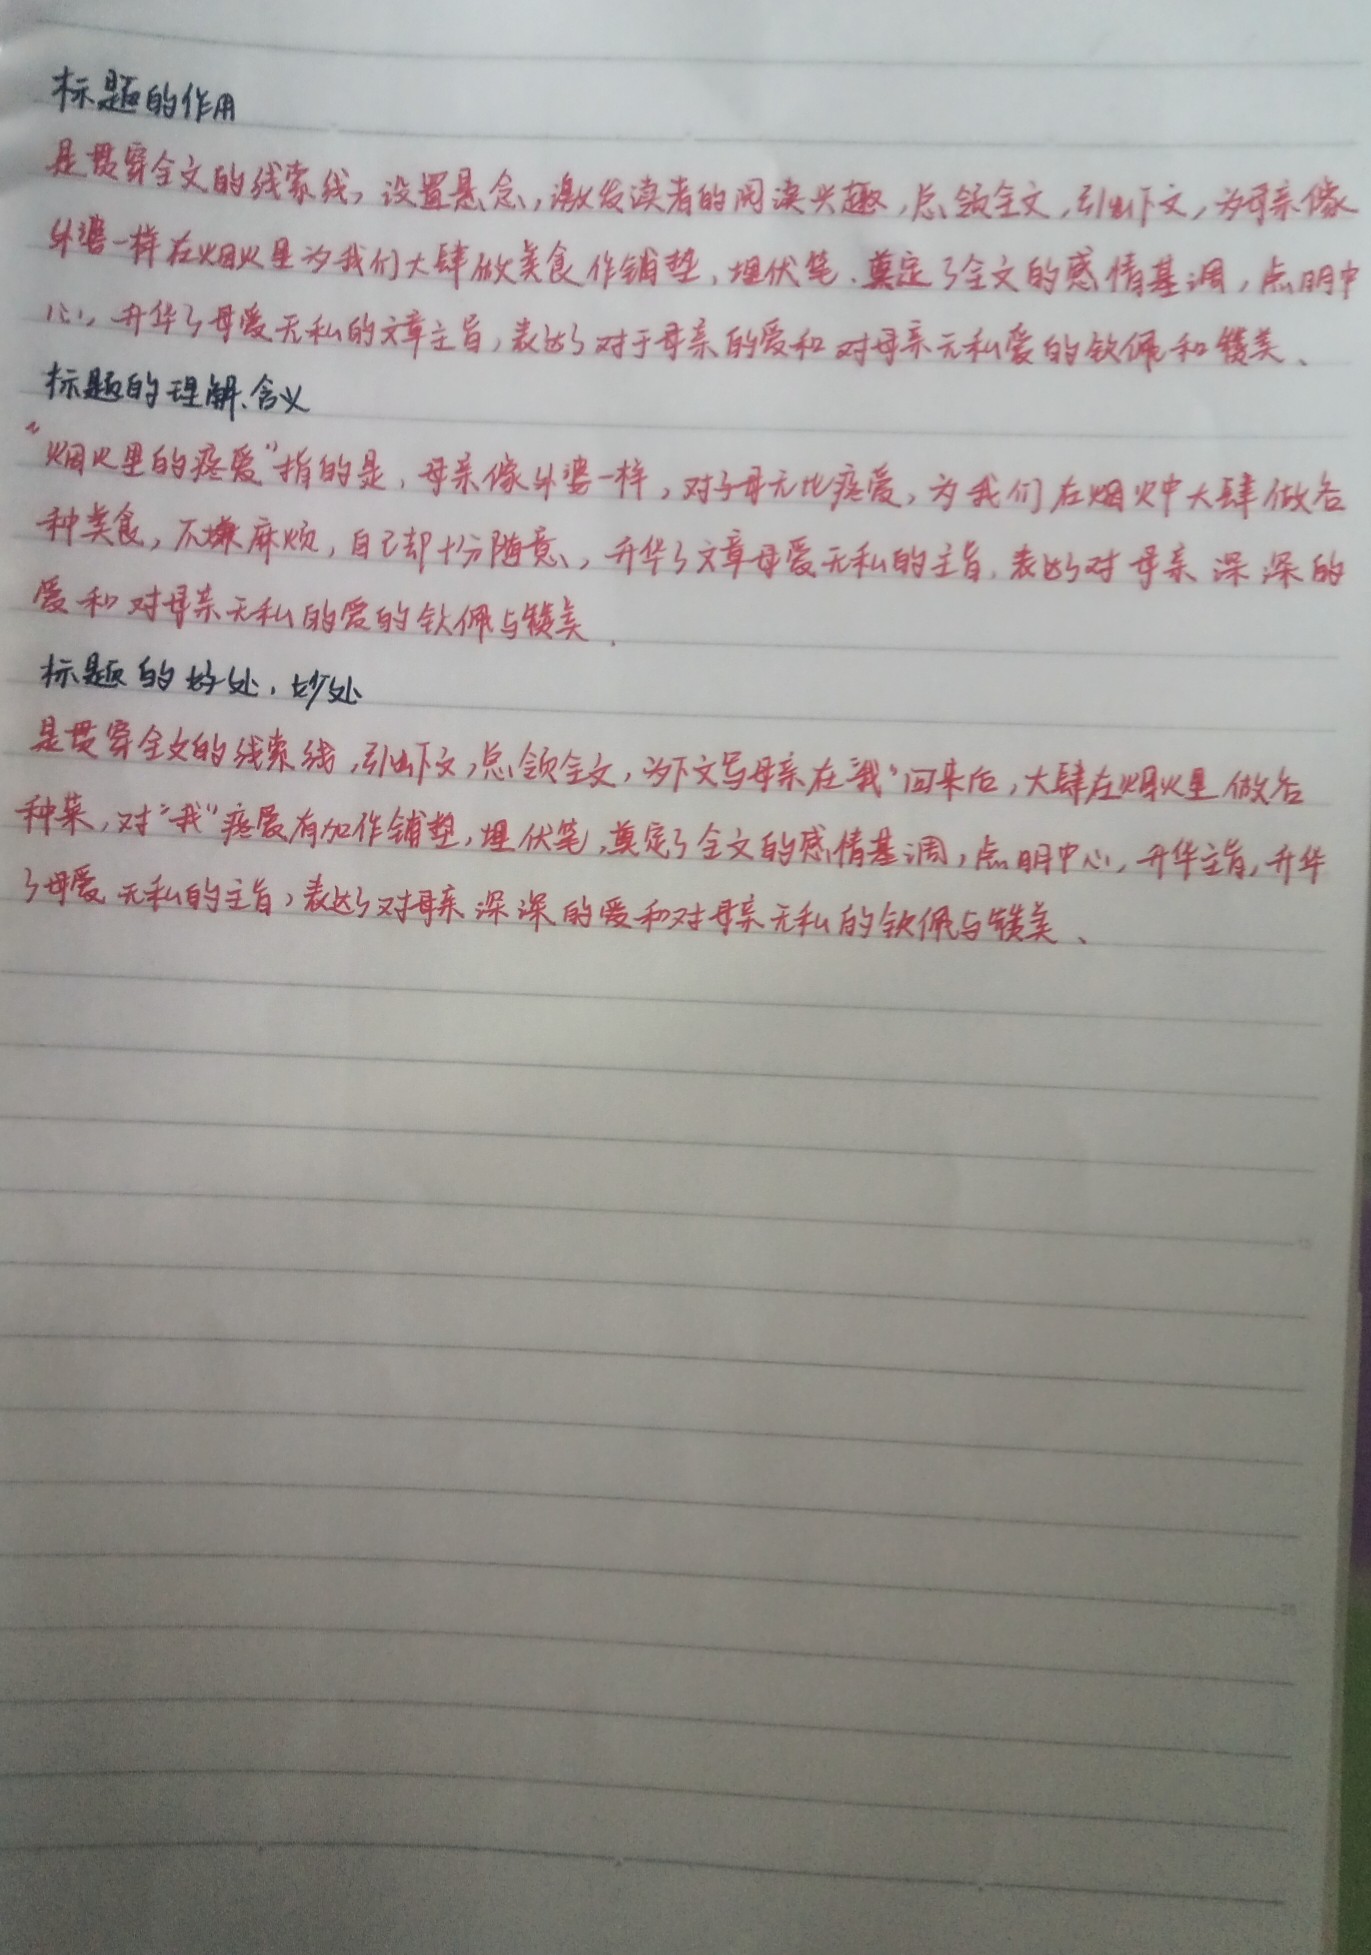 标题的作用
是贯穿全文的线索线，设置悬念，激发读者的阅读兴趣，总领全文，引出下文，为母亲像
外婆一样在烟火里为我们大肆做美食作铺垫，埋伏笔、奠定了全文的感情基调，点明中
心，升华了母爱无私的文章主旨，表达了对于母亲的爱和对母亲无私爱的钦佩和赞美、
标题的理解、含义
“烟火里的疼爱”指的是，母亲像外婆一样，对子母无比疼爱，为我们在烟火中大肆做各
种美食，不嫌麻烦，自己却十分随意，升华了文章母爱无私的主旨，表达了对母亲深深的
爱和对母亲无私的爱的钦佩与赞美．
标题的好处，妙处
是贯穿全文的线索线，引出下文，总领全文，为下文写母亲在“我”回来后，大肆在烟火里做各
种菜，对“我”疼爱有加作铺垫，埋伏笔，奠定了全文的感情基调，点明中心，升华主旨，升华
了母爱无私的主旨，表达了对母亲深深的爱和对母亲无私的钦佩与赞美、